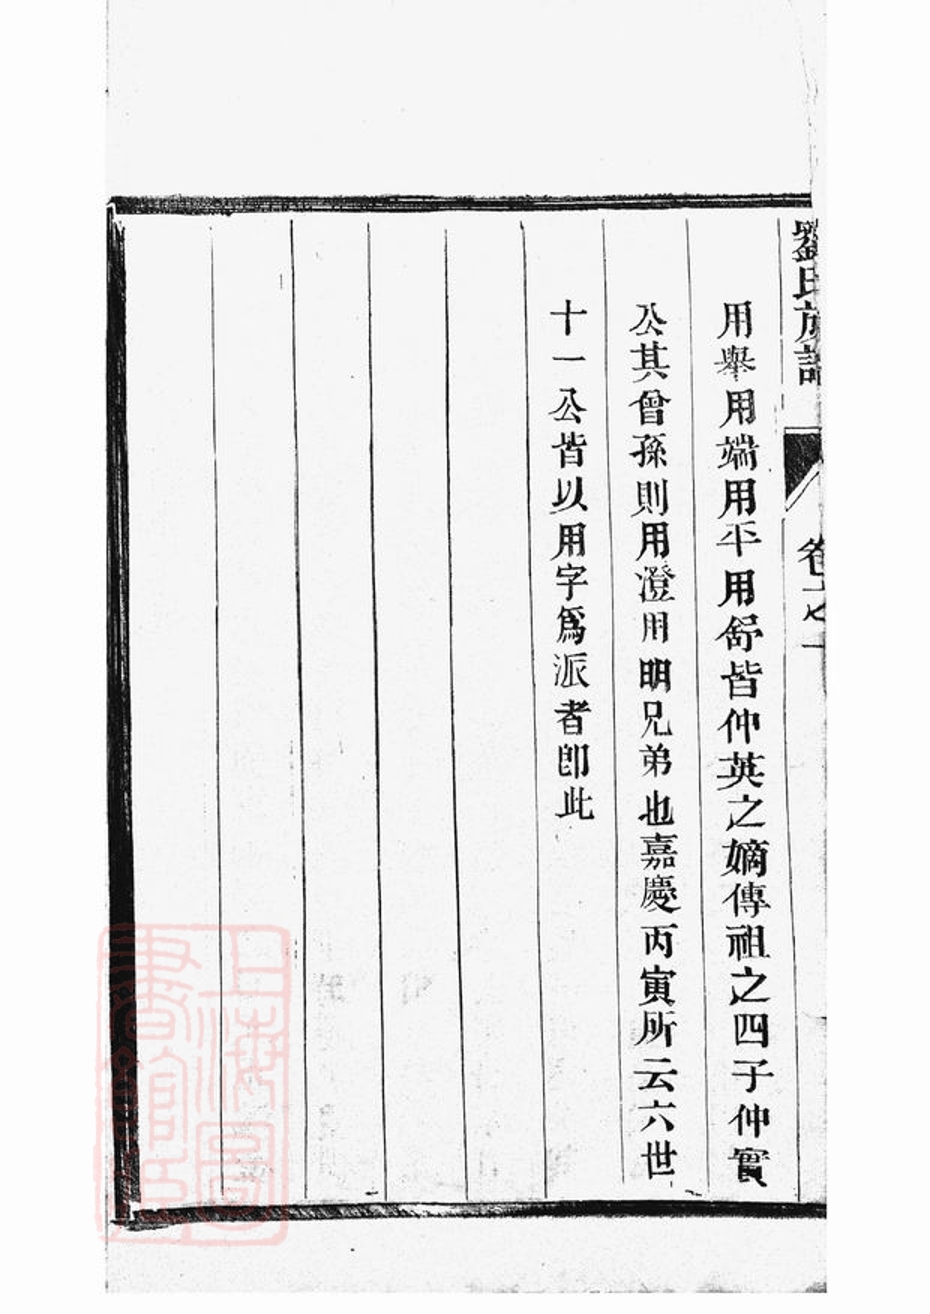 劉氏族譜 卷之一
用舉用端用平用舒皆仲英之嫡傳祖之四子仲實
公其曾孫則用澄用明兄弟也嘉慶丙寅所云六世
十一公皆以用字爲派者卽此
上海圖
書館藏